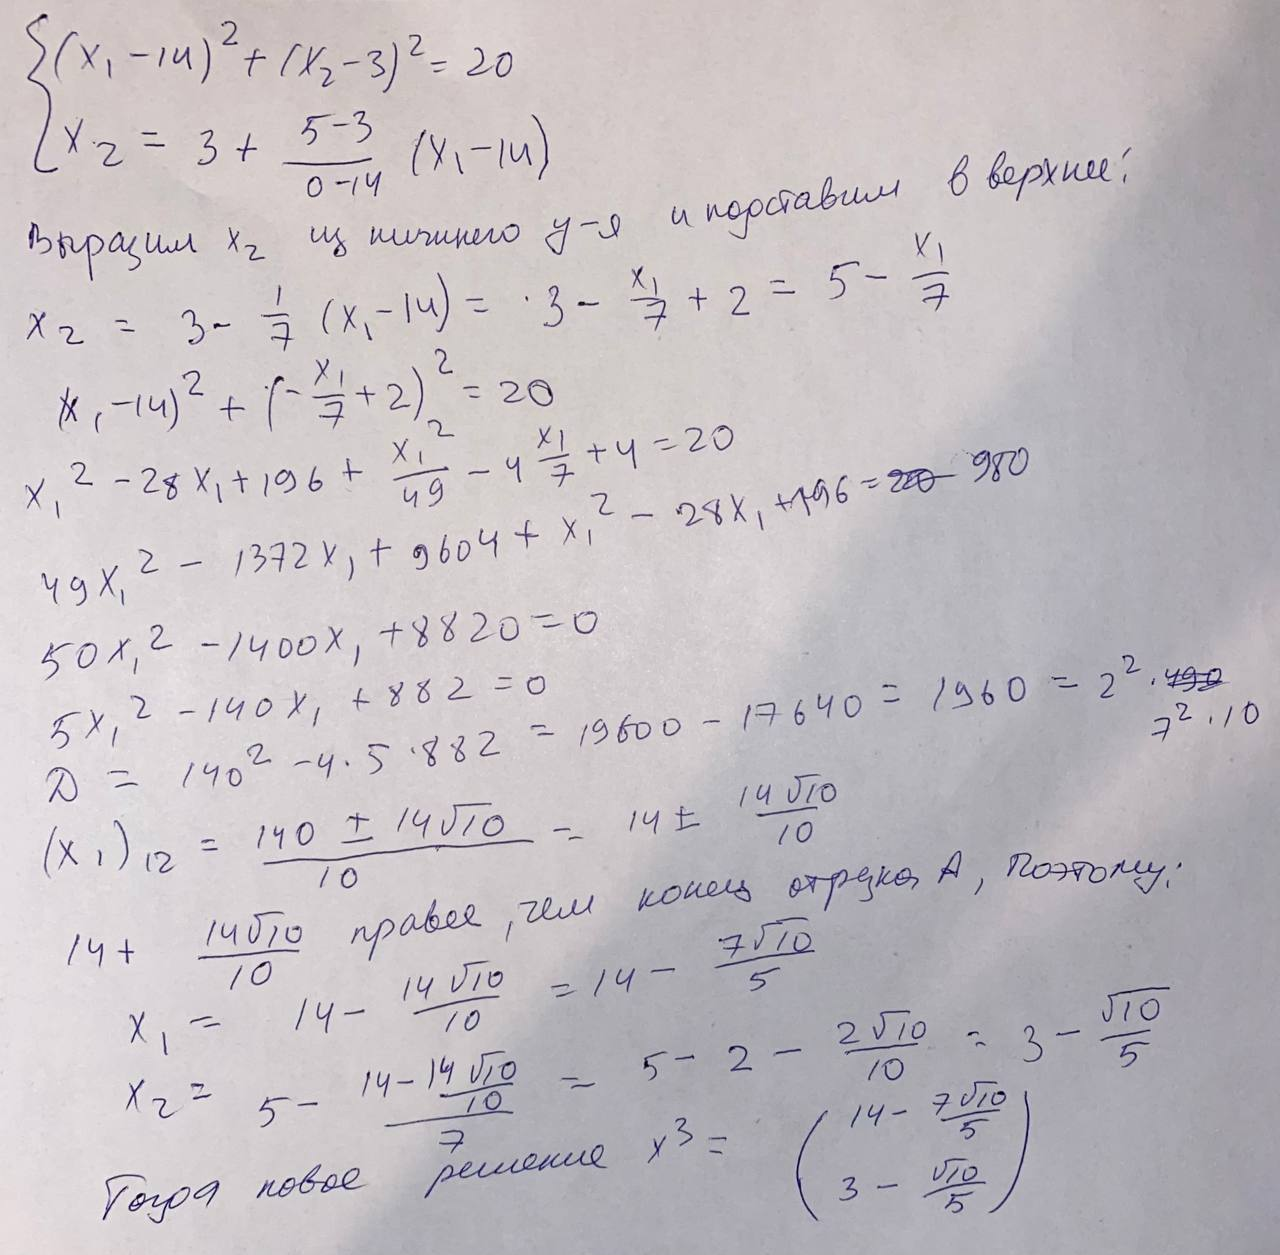 {(x₁-14)² + (x₂-3)² = 20
x₂ = 3 + (5-3)/(0-14) (x₁-14)
Выразим x₂ из нижнего у-я и подставим в верхнее:
x₂ = 3 - 1/7 (x₁-14) = 3 - x₁/7 + 2 = 5 - x₁/7
x₁-14)² + (-x₁/7 + 2)² = 20
x₁² - 28x₁ + 196 + x₁²/49 - 4 x₁/7 + 4 = 20
49x₁² - 1372x₁ + 9604 + x₁² - 28x₁ + 196 = 20 980
50x₁² - 1400x₁ + 8820 = 0
5x₁² - 140x₁ + 882 = 0
D = 140² - 4·5·882 = 19600 - 17640 = 1960 = 2² · 490 7² · 10
(x₁)₁₂ = (140 ± 14√10)/10 = 14 ± 14√10/10
14 + 14√10/10 правее, чем конец отрезка A, Поэтому:
x₁ = 14 - 14√10/10 = 14 - 7√10/5
x₂ = 5 - (14 - 14√10/10)/7 = 5 - 2 - 2√10/10 = 3 - √10/5
Тогда новое решение x³ = (14 - 7√10/5
3 - √10/5)